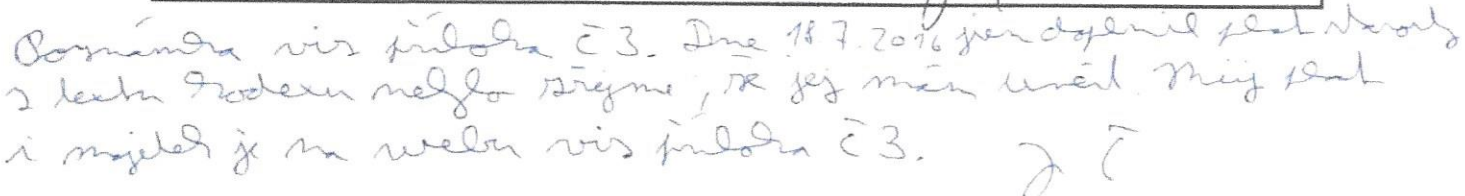 Poznámka viz příloha č 3. Dne 18.7.2016 jsem doplnil plat starosty
z textu kodexu nebylo zřejmé, že jej mám uvést. Můj plat
i majetek je na webu viz příloha č 3. J Č